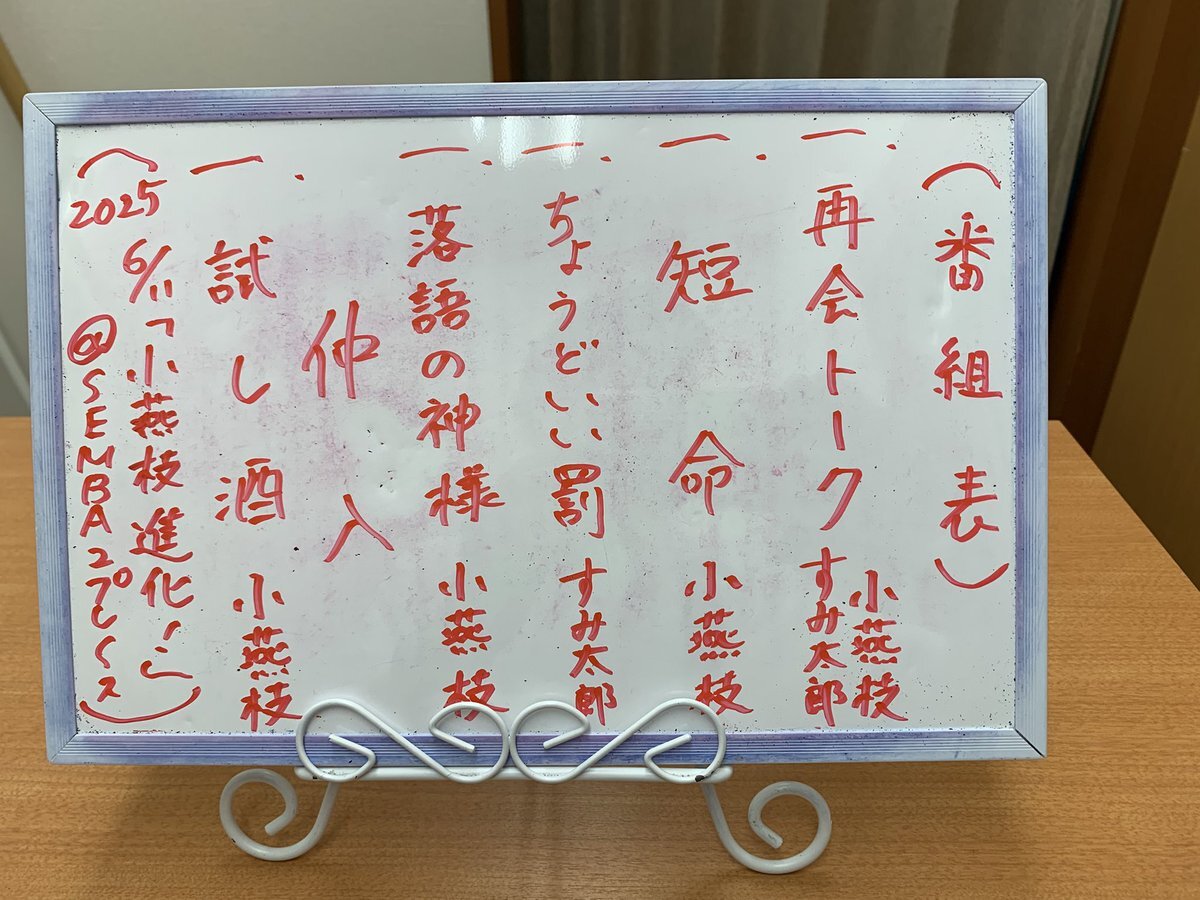 (番組表)
一. 再会トーク 小燕枝 すみ太郎
一. 短命 小燕枝
一. ちょうどいい罰 すみ太郎
一. 落語の神様 小燕枝
仲入
一. 試し酒 小燕枝
(2025 6/11「小燕枝進化!」
@SEMBA2プレイス)